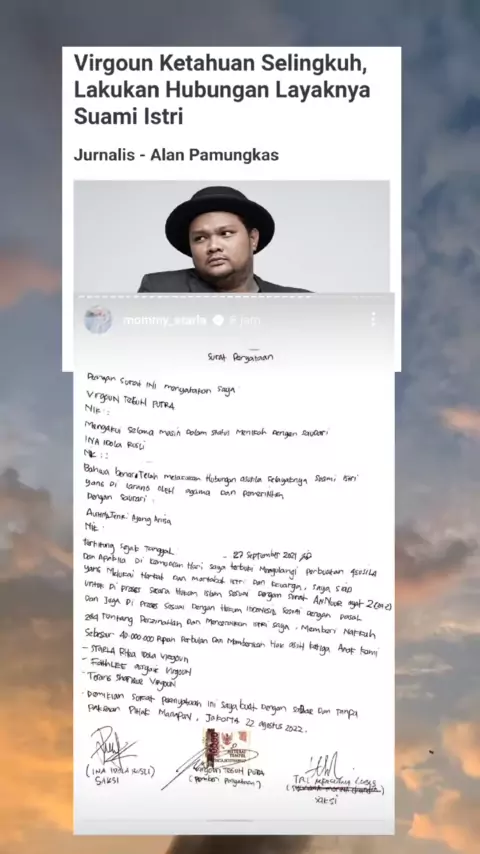 Virgoun Ketahuan Selingkuh,
Lakukan Hubungan Layaknya
Suami Istri
Jurnalis - Alan Pamungkas
mommy_starla 6 jam
Surat Pernyataan
Dengan surat ini menyatakan saya
Virgoun Teguh Putra
NIK :
Mengakui selama masih dalam status menikah dengan saudari
INA IDOLA RUSLI
NIK : :
Bahwa benar telah melakukan hubungan asusila selayaknya suami istri
yang di larang oleh agama dan pemerintah
Dengan saudari :
Tenri Ajeng Anisa
NIK .
terhitung sejak tanggal - 27 September 2021
Dan apabila di kemudian hari saya terbukti mengulangi perbuatan asusila
yang melukai harkat dan martabat istri dan keluarga, saya
untuk di proses secara hukum islam sesuai dengan surat ANNUR ayat 2
Dan juga di proses sesuai dengan hukum Indonesia sesuai dengan pasal
284 tentang perzinahan dan menceraikan istri saya, memberi nafkah
sebesar 40.000.000 rupiah perbulan dan memberikan hak asuh ketiga anak kami
- STARLA Rhea Idola Virgoun
- Virgoun
- Virgoun
- Demikian surat pernyataan ini saya buat dengan sadar dan tanpa
paksaan pihak manapun, Jakarta 22 agustus 2022.
(INA IDOLA RUSLI)
SAKSI
Virgoun TEGUH PUTRA
(pemberi pernyataan)
SAKSI